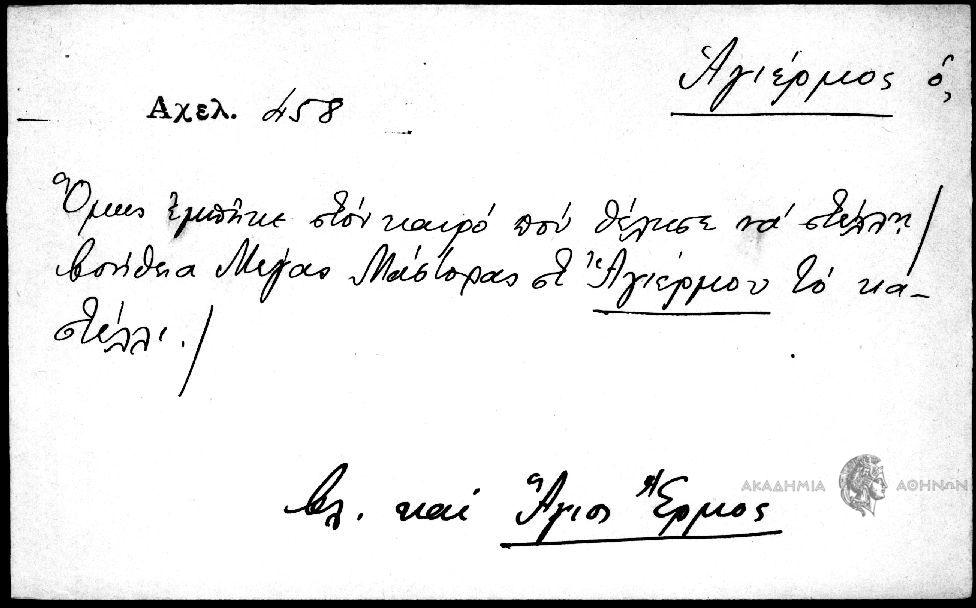 Ἁγιέρμος ὁ,
Αχελ. 458
Ὅμως ἐμπῆκε στὸν καιρό ποὺ θέλησε νά στείλῃ/
βοήθεια Μέγας Μάστορας στ' Ἁγιέρμου τό κα-
στέλλι./
Βλ. καί Ἅγιος Ἕρμος
ΑΚΑΔΗΜΙΑ ΑΘΗΝΩΝ